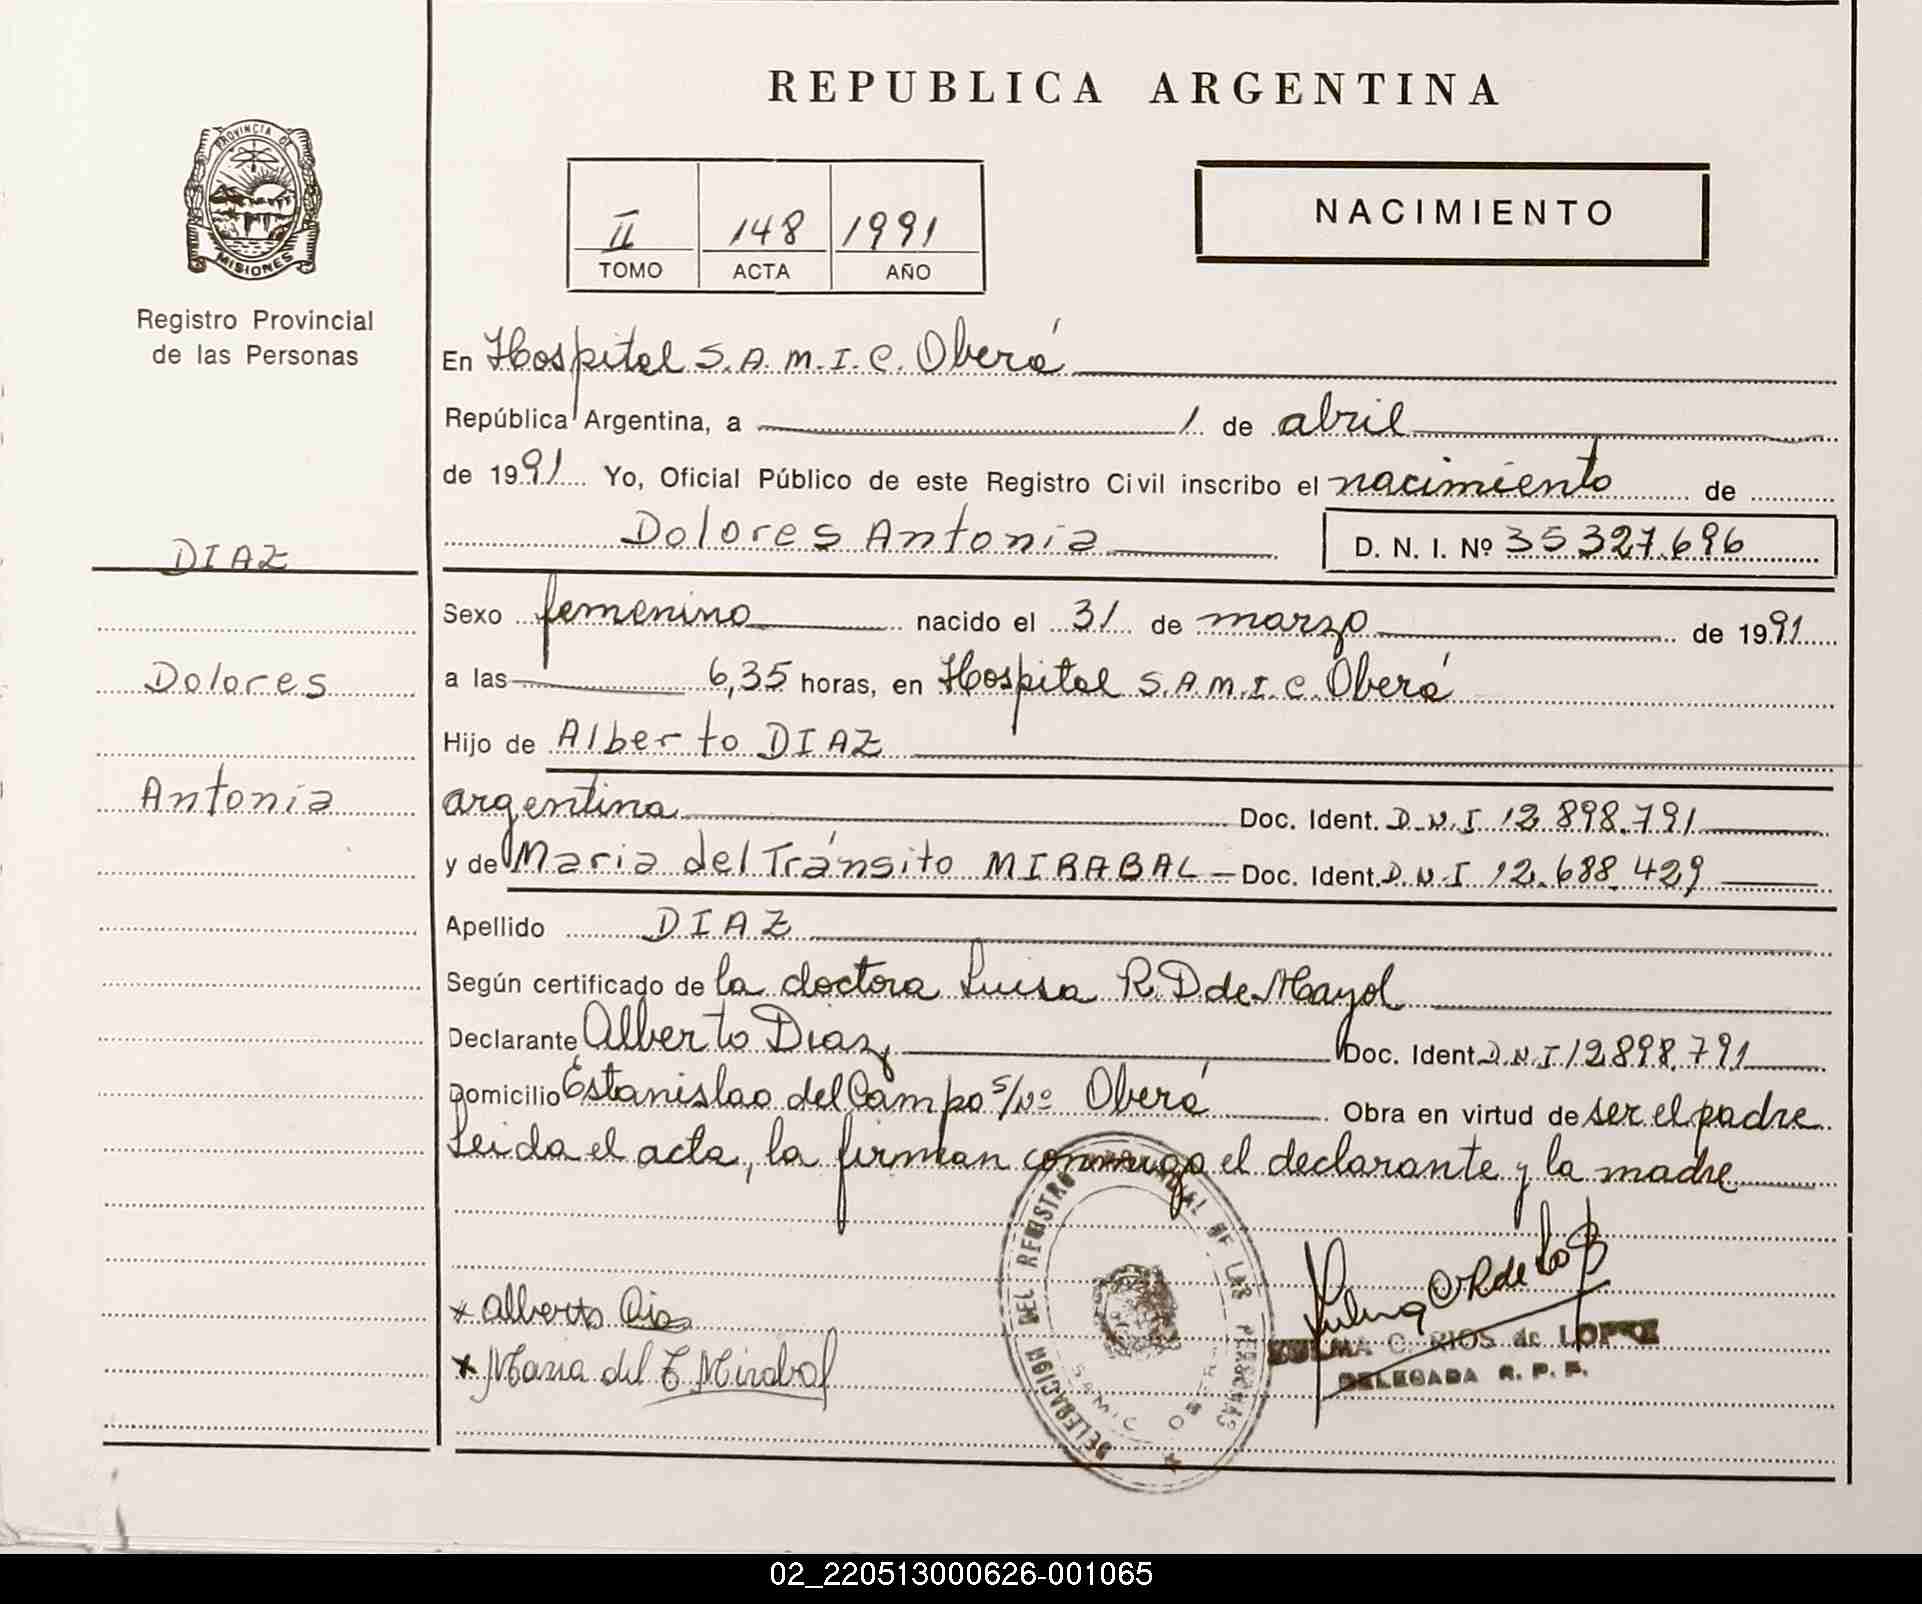 REPUBLICA ARGENTINA
PROVINCIA DE
MISIONES
Registro Provincial
de las Personas
II 148 1991
TOMO ACTA AÑO
NACIMIENTO
En Hospital S.A.M.I.C. Oberá
República Argentina, a 1 de abril
de 1991 Yo, Oficial Público de este Registro Civil inscribo el nacimiento de
Dolores Antonia D. N. I. Nº 35327.696
DIAZ
Dolores
Antonia
Sexo femenino nacido el 31 de marzo de 1991
a las 6,35 horas, en Hospital S.A.M.I.C. Oberá
Hijo de Alberto DIAZ
argentina Doc. Ident. D.N.I 12.898.791
y de Maria del Tránsito MIRABAL Doc. Ident. D.N.I 12.688.429
Apellido DIAZ
Según certificado de la doctora Luisa R. D de Mayol
Declarante Alberto Diaz Doc. Ident. D.N.I 12.898.791
Domicilio Estanislao del Campo s/Nº Oberá Obra en virtud de ser el padre
Leida el acta, la firman conmigo el declarante y la madre
DELEGACION DEL REGISTRO PROVINCIAL DE LAS PERSONAS
SAMIC OBERA
x Alberto Dias
x Maria del T Mirabal
ZULMA C. RIOS de LOPEZ
DELEGADA R. P. P.
02_220513000626-001065